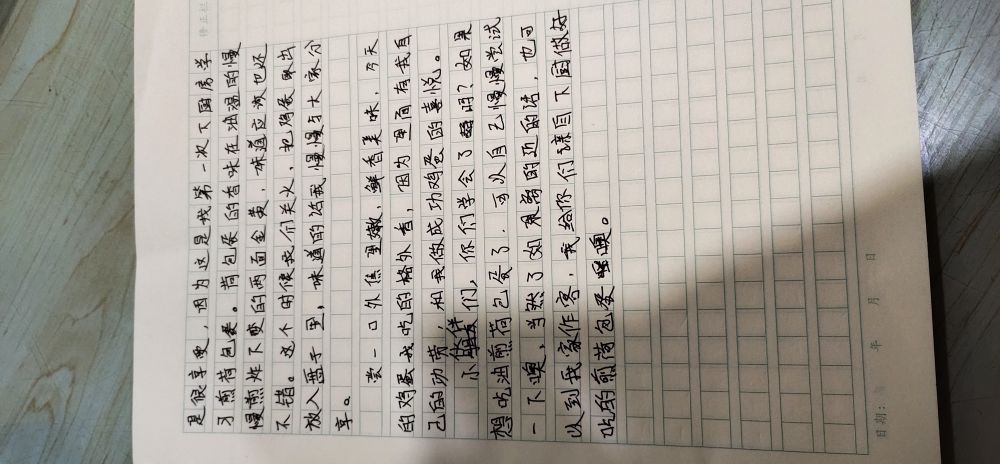 是很享受，因为这是我第一次下厨房学
习煎荷包蛋。荷包蛋的香味在油温的慢
慢煎炸下变的两面金黄，味道应该也还
不错。这个时候我们关火，把鸡蛋取出
放入盘子里，味道的话我慢慢与大家分
享。
尝一口外焦里嫩，鲜香美味，今天
的鸡蛋我吃的格外香，因为里面有我自
己的功劳，和我做成功鸡蛋的喜悦。
小伙伴们，你们学会了吗？如果
想吃油煎荷包蛋了，可以自己慢慢尝试
一下噢，当然了如果离的近的话，也可
以到我家作客，我给你们亲自下厨做好
吃的煎荷包蛋噢。
日期： 年 月 日